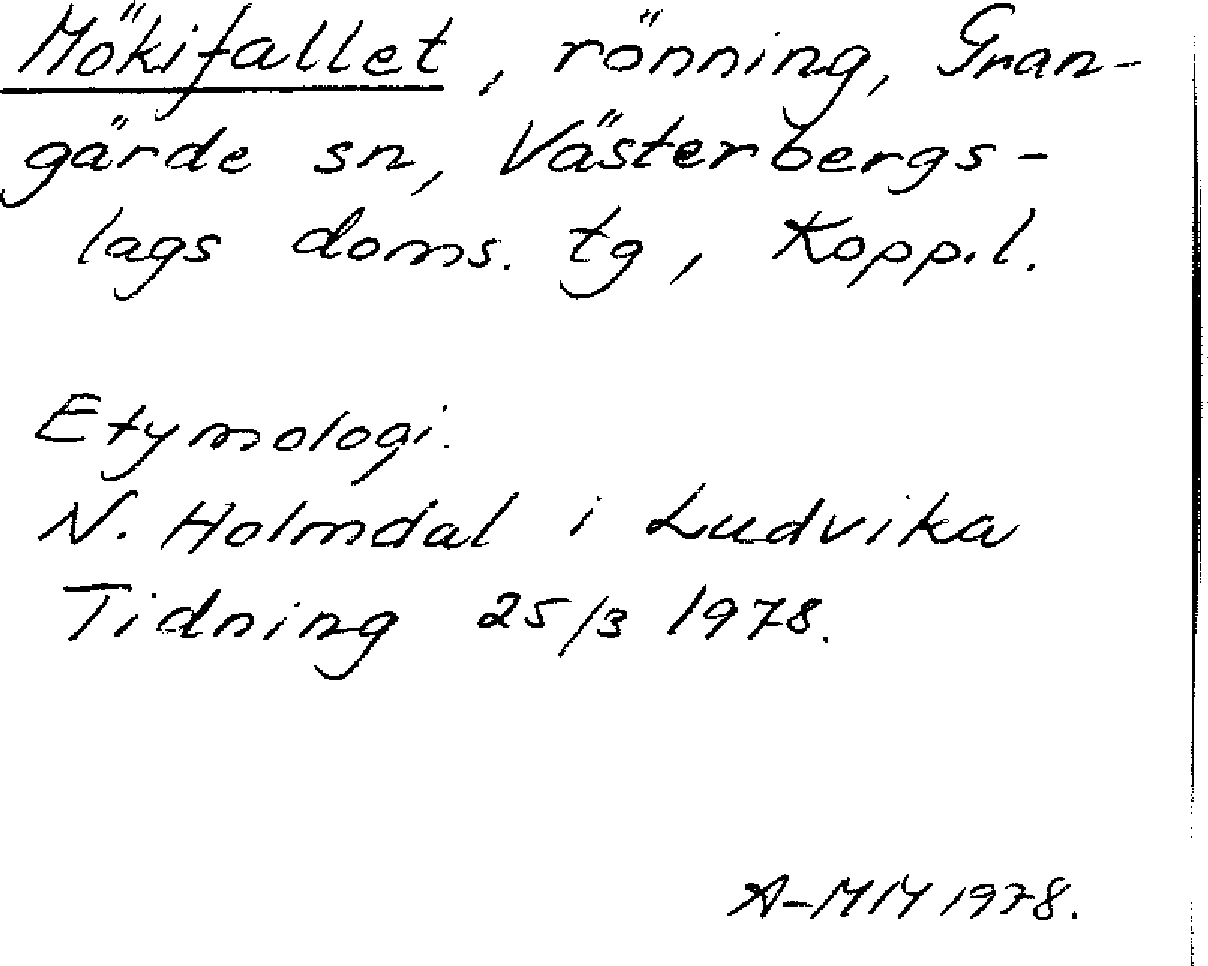 Mökifallet, rönning, Gran-
gärde sn, Västerbergs-
lags doms. tg, Kopp.l.
Etymologi.
N. Holmdal i Ludvika
Tidning 25/3 1978.
A-MM 1978.